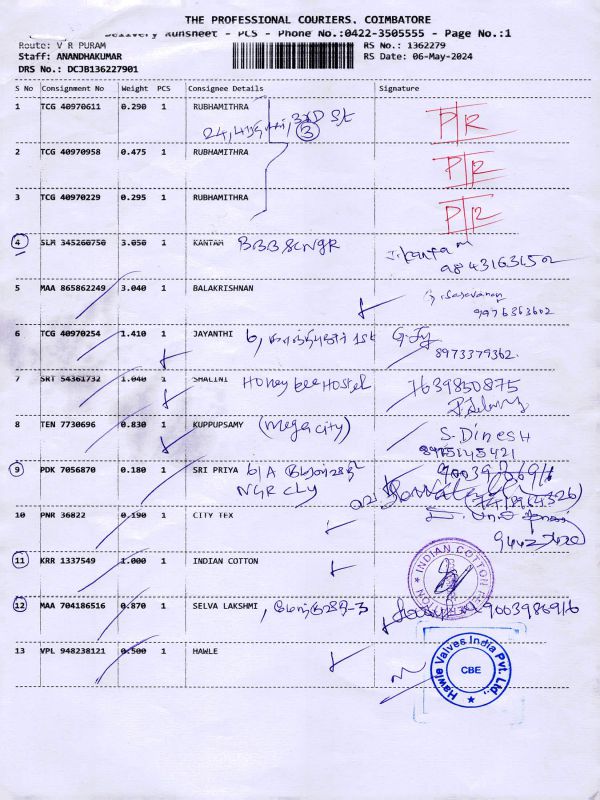 THE PROFESSIONAL COURIERS, COIMBATORE
Delivery Runsheet - PCS - Phone No.:0422-3505555 - Page No.:1
Route: V R PURAM
RS No.: 1362279
Staff: ANANDHAKUMAR
RS Date: 06-May-2024
DRS No.: DCJB136227901
S No Consignment No Weight PCS Consignee Details Signature
1 TCG 40970611 0.290 1 RUBHAMITHRA
24, 3rd St P/R
3
2 TCG 40970958 0.475 1 RUBHAMITHRA P/R
3 TCG 40970229 0.295 1 RUBHAMITHRA P/R
4 SLM 345260750 3.050 1 KANTAM
9843163650
5 MAA 865862249 3.040 1 BALAKRISHNAN
9976363602
6 TCG 40970254 1.410 1 JAYANTHI 6, 1st
8973379362
7 SRT 54361732 1.040 1 SHALINI Honey bee Hostel 7639850875
8 TEN 7730696 0.830 1 KUPPUPSAMY (Megacity) S. Dinesh
8975145421
9 PDK 7056870 0.180 1 SRI PRIYA 6/A
NGR
10 PNR 36822 0.190 1 CITY TEX
11 KRR 1337549 1.000 1 INDIAN COTTON
INDIAN COTTON
12 MAA 704186516 0.870 1 SELVA LAKSHMI, 9003986916
13 VPL 948238121 0.500 1 HAWLE
Hawle Valves India Pvt. Ltd.,
CBE